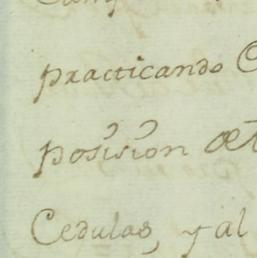 practicando
posision
Cedulas, y al